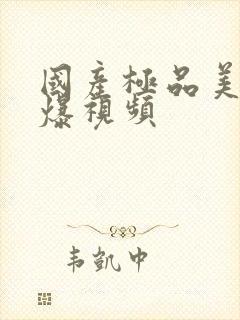 國產極品美
爆視頻
韦凱中